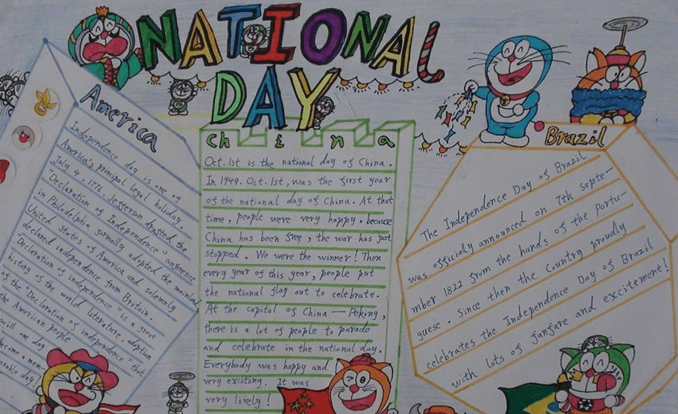 NATIONAL
DAY
America
Independence day is one of
America's principal legal holiday
July 4, 1776. Jefferson drafted the
"Declaration of Independence" conference
in Philadelphia formally adopted the mainly
United States of America and solemnly
declared independence from Britain.
Declaration of independence "is a
history of the world literature, adoption
of the Declaration of independence" that
the American people
will one day
become a
day!
China
Oct. 1st is the national day of China.
In 1949. Oct. 1st, was the first year
of the national day of China. At that
time, people were very happy, because
China has been free, the war has just
stopped. We were the winner! Then
every year of this year, people put
the national flag out to celebrate.
At the capital of China — Peking,
there is a lot of people to parade
and celebrate in the national day.
Everybody was happy and
very exciting. It was
very lively!
Brazil
The Independence Day of Brazil
was officialy announced on 7th septe-
mber 1822 from the hands of the Portu-
guese. since then the Country proudly
celebrates the Independence Day of Brazil
with lots of fanfare and excitement!